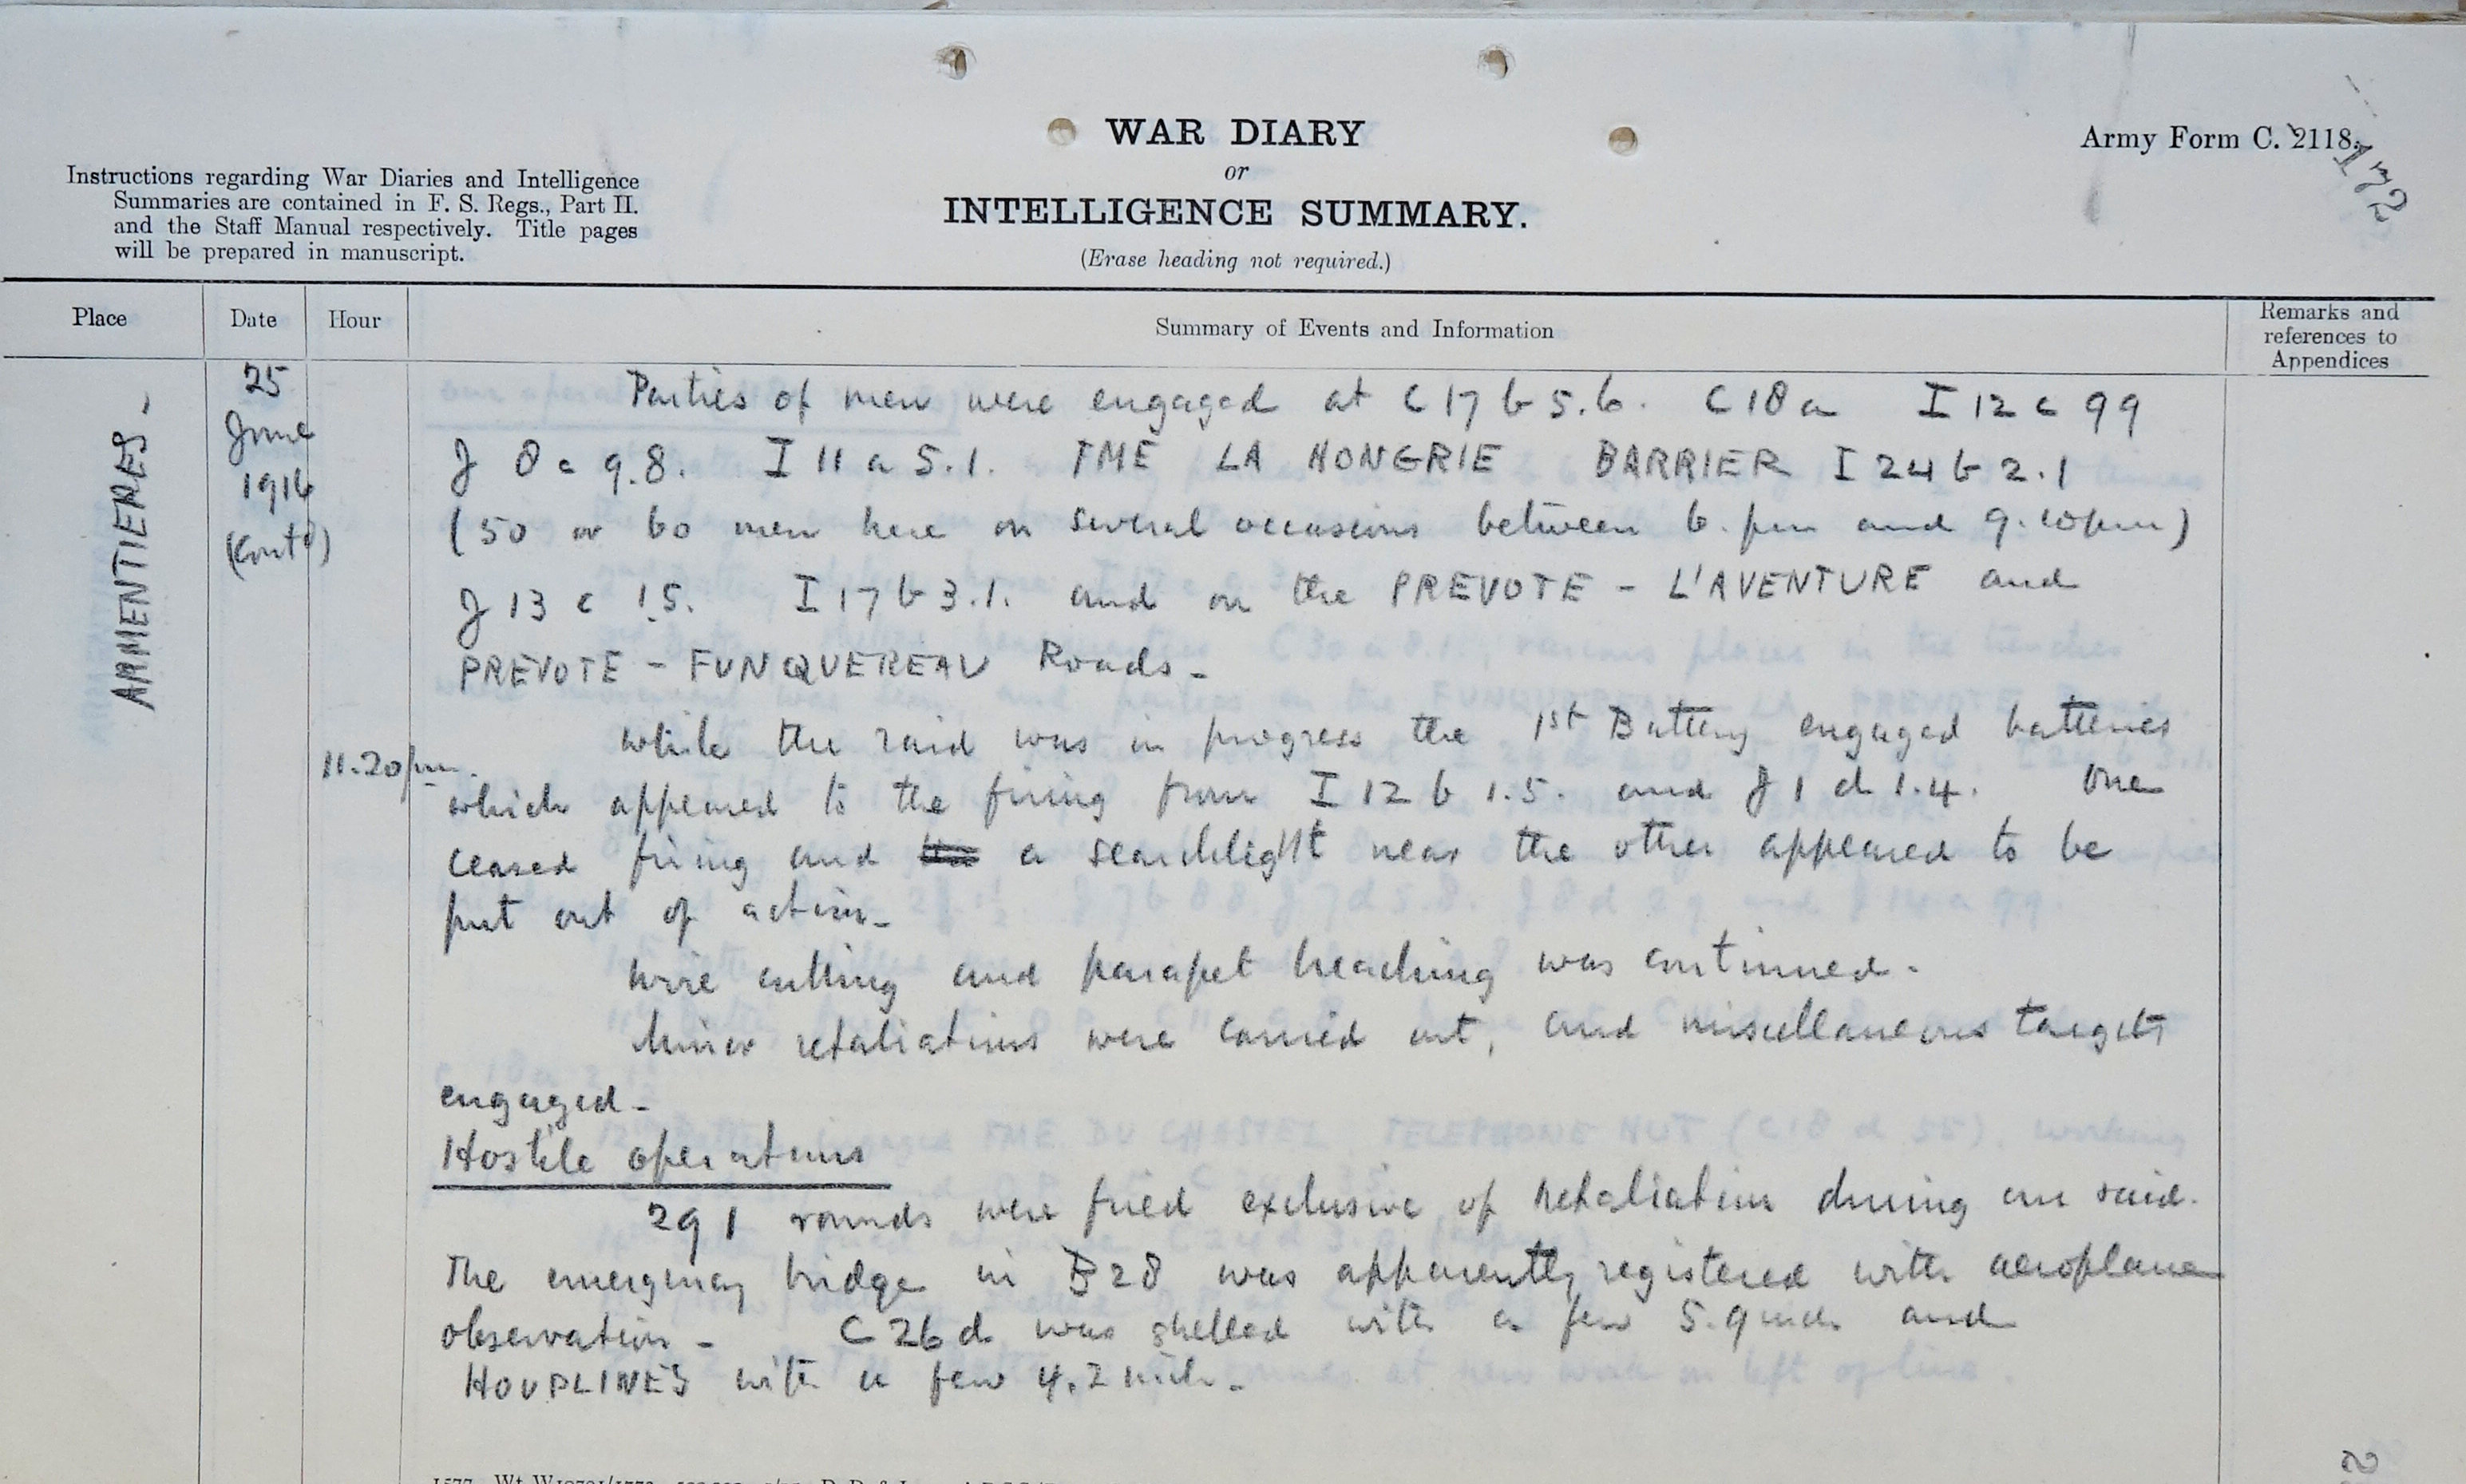 WAR DIARY
or
INTELLIGENCE SUMMARY.
(Erase heading not required.)
Army Form C. 2118.
172
Instructions regarding War Diaries and Intelligence
Summaries are contained in F. S. Regs., Part II.
and the Staff Manual respectively. Title pages
will be prepared in manuscript.
Place Date Hour Summary of Events and Information Remarks and references to Appendices
ARMENTIERES -
25
June
1916
(Contd)
Parties of men were engaged at C 17 b 5.6. C 18 a I 12 c 99
J 8 c 9.8. I 11 a 5.1. FME LA HONGRIE BARRIER I 24 b 2.1
(50 or 60 men here on several occasions between 6. pm and 9.10pm)
J 13 c 1.5. I 17 b 3.1. and on the PREVOTE - L'AVENTURE and
PREVOTE - FUNQUEREAU Roads -
11.20pm.
While the raid was in progress the 1st Battery engaged batteries
which appeared to the firing from I 12 b 1.5. and J 1 d 1.4. One
ceased firing and a searchlight near the other appeared to be
put out of action -
Wire cutting and parapet breaching was continued -
Minor retaliations were carried out, and miscellaneous targets
engaged -
Hostile operations
291 rounds were fired exclusive of retaliation during our raid.
The emergency bridge in B28 was apparently registered with aeroplane
observation - C 26 d was shelled with a few 5.9 inch and
HOUPLINES with a few 4.2 inch -